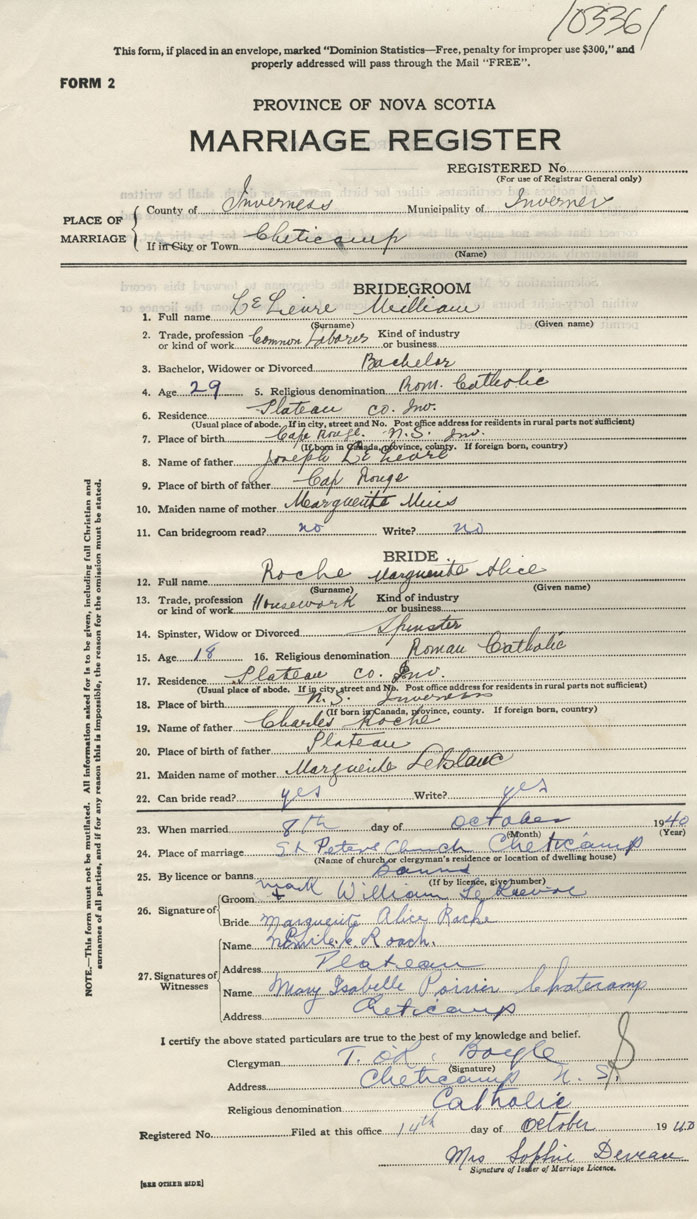 103361
This form, if placed in an envelope, marked "Dominion Statistics—Free, penalty for improper use $300," and
properly addressed will pass through the Mail "FREE".
FORM 2
PROVINCE OF NOVA SCOTIA
MARRIAGE REGISTER
REGISTERED No.
(For use of Registrar General only)
PLACE OF MARRIAGE
County of Inverness Municipality of Inverness
If in City or Town Cheticamp
(Name)
BRIDEGROOM
1. Full name Le Lievre William
(Surname) (Given name)
2. Trade, profession or kind of work Common Laborer Kind of industry or business
3. Bachelor, Widower or Divorced Bachelor
4. Age 29 5. Religious denomination Rom. Catholic
6. Residence Plateau co. Inv.
(Usual place of abode. If in city, street and No. Post office address for residents in rural parts not sufficient)
7. Place of birth Cape Rouge N.S. Inv.
(If born in Canada, province, county. If foreign born, country)
8. Name of father Joseph
9. Place of birth of father Cap Rouge
10. Maiden name of mother Marguerite
11. Can bridegroom read? no Write? no
BRIDE
12. Full name Roche Marguerite Alice
(Surname) (Given name)
13. Trade, profession or kind of work Housework Kind of industry or business
14. Spinster, Widow or Divorced Spinster
15. Age 18 16. Religious denomination Roman Catholic
17. Residence Plateau co. Inv.
(Usual place of abode. If in city, street and No. Post office address for residents in rural parts not sufficient)
18. Place of birth N.S. Inverness
(If born in Canada, province, county. If foreign born, country)
19. Name of father Charles Roche
20. Place of birth of father Plateau
21. Maiden name of mother Marguerite LeBlanc
22. Can bride read? yes Write? yes
23. When married 8th day of October 1940
(Month) (Year)
24. Place of marriage St Peters Church Cheticamp
(Name of church or clergyman's residence or location of dwelling house)
25. By licence or banns banns
(If by licence, give number)
26. Signature of
Groom mark + William
Bride Marguerite Alice Roche
27. Signatures of Witnesses
Name Roach.
Address Plateau
Name Mary Isabelle Poirier
Address Cheticamp
I certify the above stated particulars are true to the best of my knowledge and belief.
Clergyman T. O'R. Boyle
(Signature)
Address Cheticamp N. S.
Religious denomination Catholic
Registered No. Filed at this office 14th day of October 1940
Mrs Sophie Deveau
Signature of Issuer of Marriage Licence.
[SEE OTHER SIDE]
NOTE.—This form must not be mutilated. All information asked for is to be given, including full Christian and
surnames of all parties, and if for any reason this is impossible, the reason for the omission must be stated.